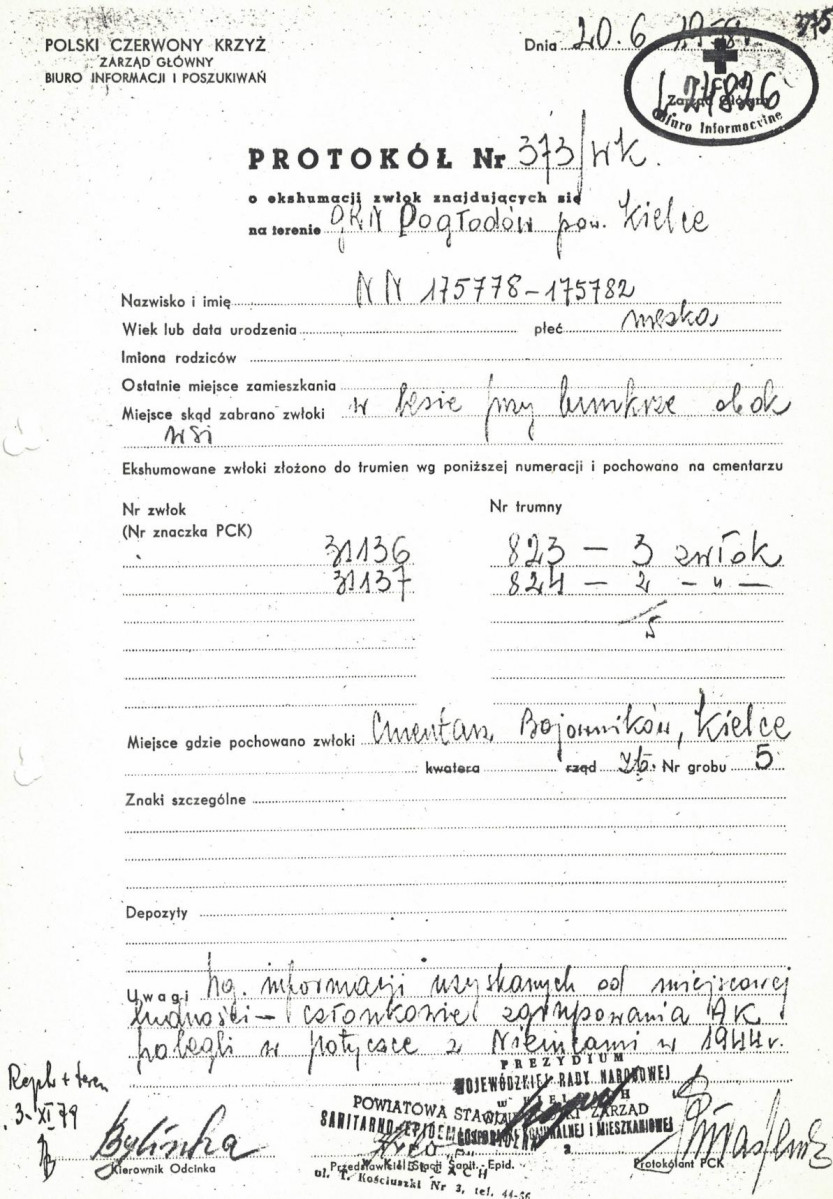 375
POLSKI CZERWONY KRZYŻ
ZARZĄD GŁÓWNY
BIURO INFORMACJI I POSZUKIWAŃ
Dnia 20.6
Zarząd Główny
Biuro Informacyjne
24826
PROTOKÓŁ Nr 373/WK.
o ekshumacji zwłok znajdujących się
na terenie GRN pow. Kielce
Nazwisko i imię NN 175778-175782
Wiek lub data urodzenia płeć męska
Imiona rodziców
Ostatnie miejsce zamieszkania
Miejsce skąd zabrano zwłoki w lesie przy bunkrze obok
wsi
Ekshumowane zwłoki złożono do trumien wg poniższej numeracji i pochowano na cmentarzu
Nr zwłok Nr trumny
(Nr znaczka PCK)
31136 823 – 3 zwłok
31137 824 – 2 – " –
5
Miejsce gdzie pochowano zwłoki Cmentarz Bojowników, Kielce
kwatera rząd Nr grobu 5
Znaki szczególne
Depozyty
Uwagi wg. informacji uzyskanych od miejscowej
ludności – członkowie zgrupowania AK
polegli w potyczce z Niemcami w 1944 r.
PREZYDIUM
WOJEWÓDZKIEJ RADY NARODOWEJ
POWIATOWA ZARZĄD
3-XI 79
Bylinka
Kierownik Odcinka
Przedstawiciel Stacji Sanit.-Epid.
Protokólant PCK
ul. T. Kościuszki Nr 3, tel. 44-56